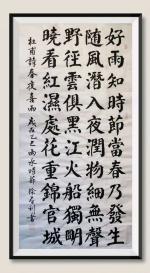 好雨知時節當春乃發生
隨風潛入夜潤物細無聲
野徑雲俱黑江火船獨明
曉看紅濕處花重錦官城
杜甫詩春夜喜雨 歲在乙巳雨水時節 徐利書